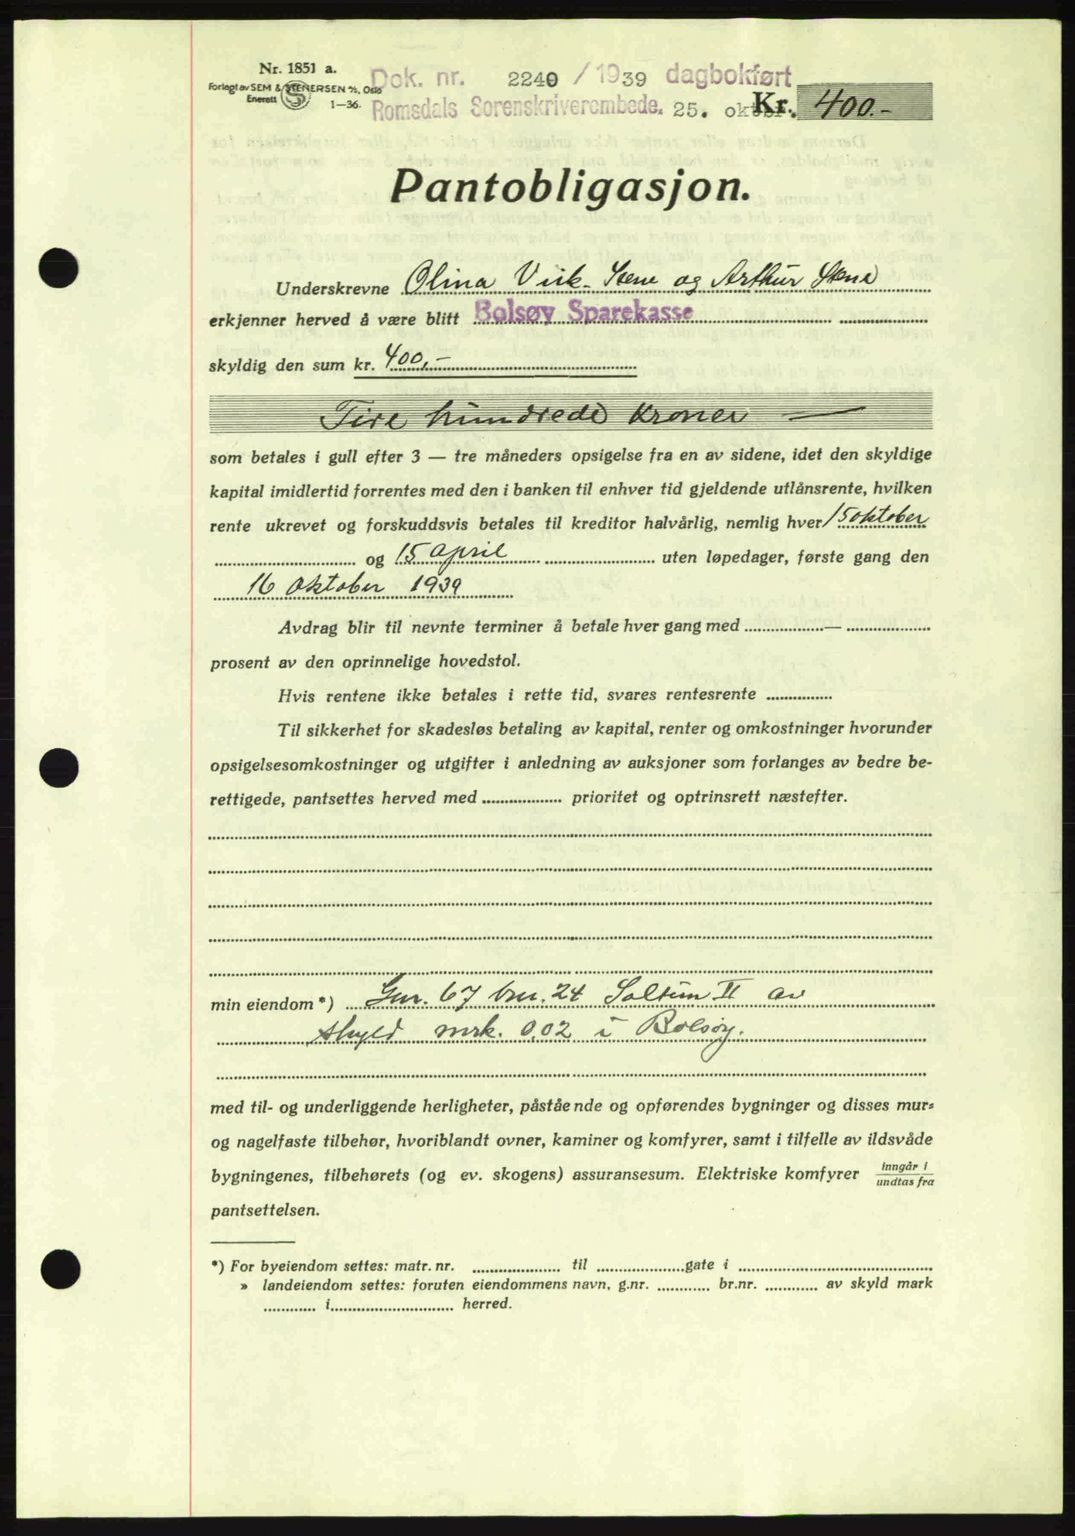 Nr. 1851 a.
Forlagt av SEM & STENERSEN A/S, Oslo
Enerett 1—36.
Dok. nr. 2240 / 1939 dagbokført
Romsdals Sorenskriverembede. 25. oktbr. Kr. 400.-
Pantobligasjon.
Underskrevne Olina Viik-Stene og Arthur Stene
erkjenner herved å være blitt Bolsøy Sparekasse
skyldig den sum kr. 400,-
Fire hundrede kroner —
som betales i gull efter 3 — tre måneders opsigelse fra en av sidene, idet den skyldige
kapital imidlertid forrentes med den i banken til enhver tid gjeldende utlånsrente, hvilken
rente ukrevet og forskuddsvis betales til kreditor halvårlig, nemlig hver 15 oktober
og 15 april uten løpedager, første gang den
16 oktober 1939
Avdrag blir til nevnte terminer å betale hver gang med —
prosent av den oprinnelige hovedstol.
Hvis rentene ikke betales i rette tid, svares rentesrente
Til sikkerhet for skadesløs betaling av kapital, renter og omkostninger hvorunder
opsigelsesomkostninger og utgifter i anledning av auksjoner som forlanges av bedre be-
rettigede, pantsettes herved med prioritet og optrinsrett næstefter.
min eiendom *) Gnr. 67 bnr. 24 Soltun II av
skyld mrk. 0,02 i Bolsøy.
med til- og underliggende herligheter, påstående og opførendes bygninger og disses mur-
og nagelfaste tilbehør, hvoriblandt ovner, kaminer og komfyrer, samt i tilfelle av ildsvåde
bygningenes, tilbehørets (og ev. skogens) assuransesum. Elektriske komfyrer inngår i
undtas fra
pantsettelsen.
*) For byeiendom settes: matr. nr. til gate i
» landeiendom settes: foruten eiendommens navn, g.nr. br.nr. av skyld mark
i herred.